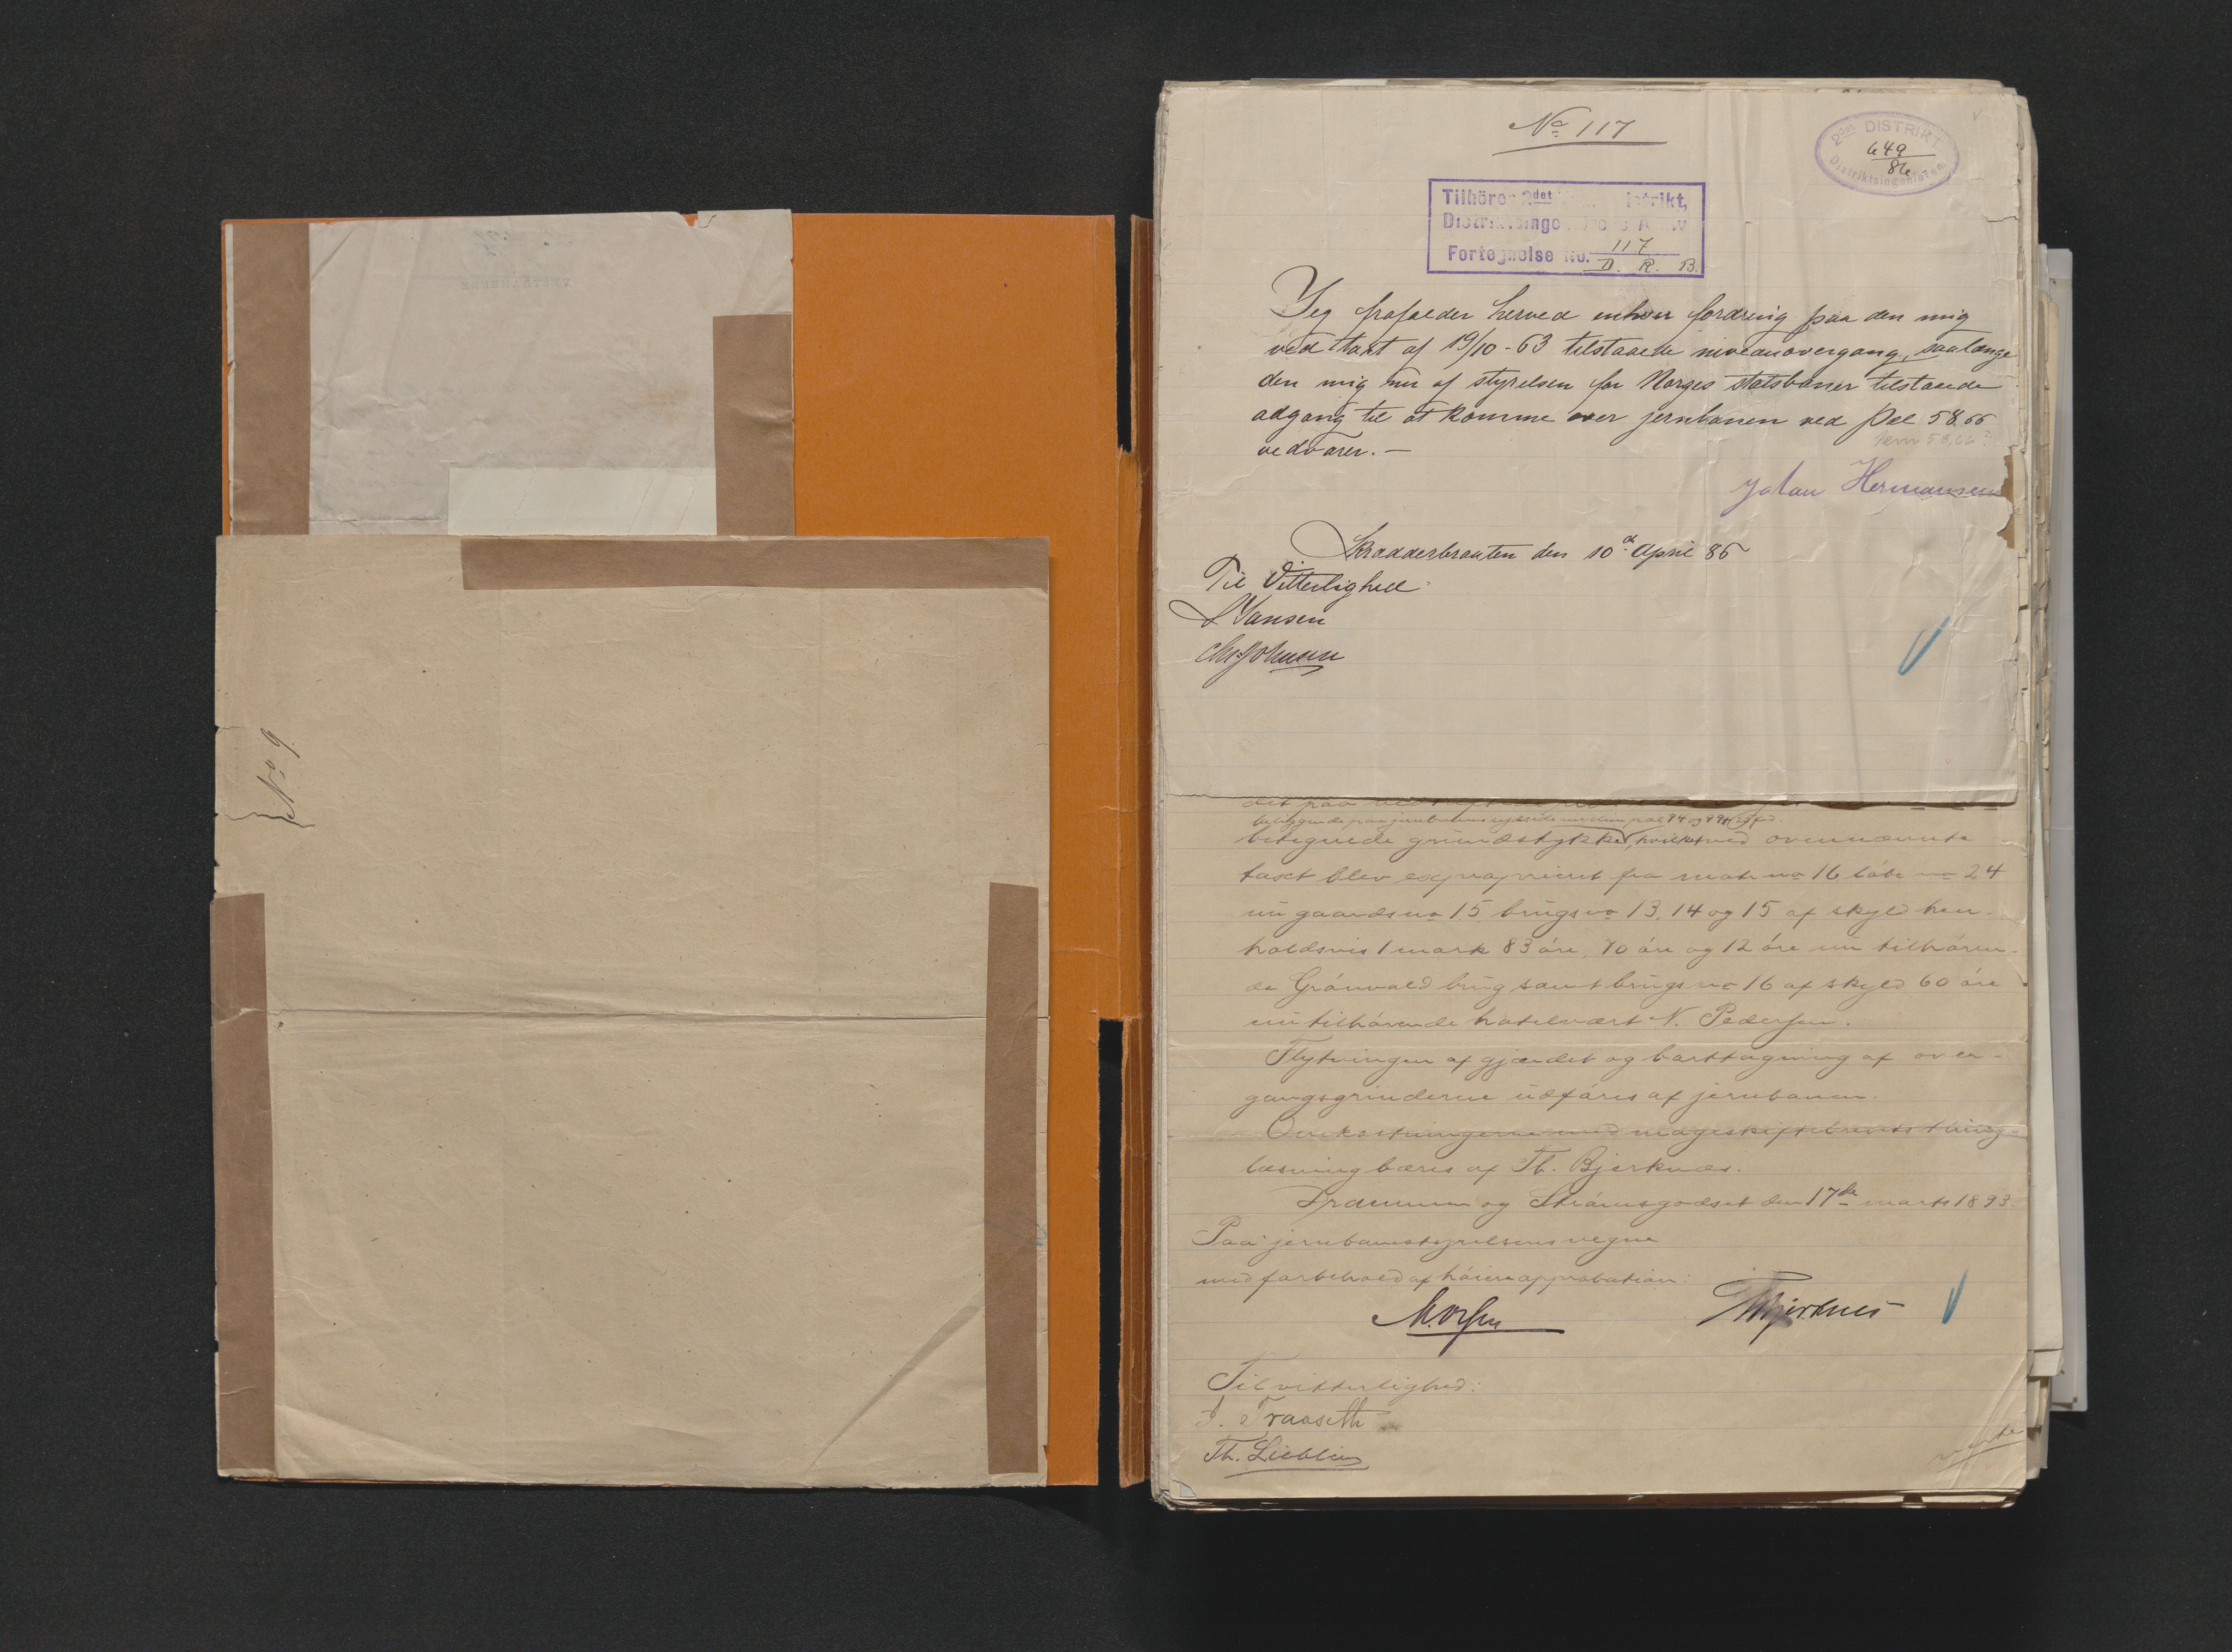 No 9.
No 117
2det DISTRIKT
649
86
Distriktsingeniøren
Tilhører 2det
Fortegnelse No. 117
D. R. B.
Jeg frafalder herved enhver fordring paa den mig
ved taxt af 19/10-63 tilstaaede niveauovergang, saalænge
den mig nu af styrelsen for Norges statsbaner tilstaaede
adgang til at komme over jernbanen ved Pæl 58.66
km 58,66?
vedvarer.-
Johan Hermansen
Skradderbraaten den 10d April 86
Til Vitterlighed
L Jansen
Chr. Johnsen
det paa
beliggende paa jernbanens side mellem pæl 94 og
betegnede grundstykke, hvilket ved ovennævnte
taxt blev exproprieret fra matr no 16 løbe no 24
nu gaardsno 15 brugsno 13, 14 og 15 af skyld hen-
holdsvis 1 mark 83 øre, 70 øre og 12 øre nu tilhøren-
de Grønvold brug samt brugsno 16 af skyld 60 øre
nu tilhørende hotelvært N. Pedersen.
Flytningen af gjærdet og borttagning af over-
gangsgrinderne udføres af jernbanen.
Omkostningerne med mageskiftebrevets thing-
læsning bæres af Th. Bjerknæs.
Drammen og Strømsgodset den 17de marts 1893.
Paa jernbanestyrelsens vegne
med forbehold af høiere approbation:
Th Bjerknes
Til vitterlighed:
J. Traaseth
Th. Lieblein
vende